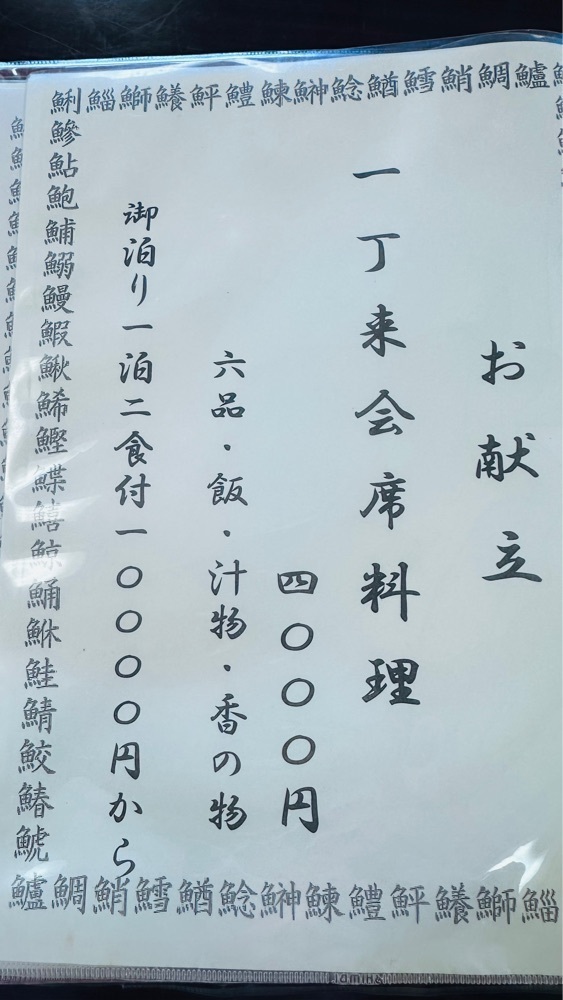 お献立
一丁来会席料理
四〇〇〇円
六品・飯・汁物・香の物
御泊り一泊二食付一〇〇〇〇円から
鯏鯔鰤鱶鮃鱧鰊鰰鯰鰌鱈鮹鯛鱸
鰺鮎鮑鯆鰯鰻鰕鰍鯑鰹鰈鱚鯨鯒鮴鮭鯖鮫鰆鯱
鱸鯛鮹鱈鰌鯰鰰鰊鱧鮃鱶鰤鯔